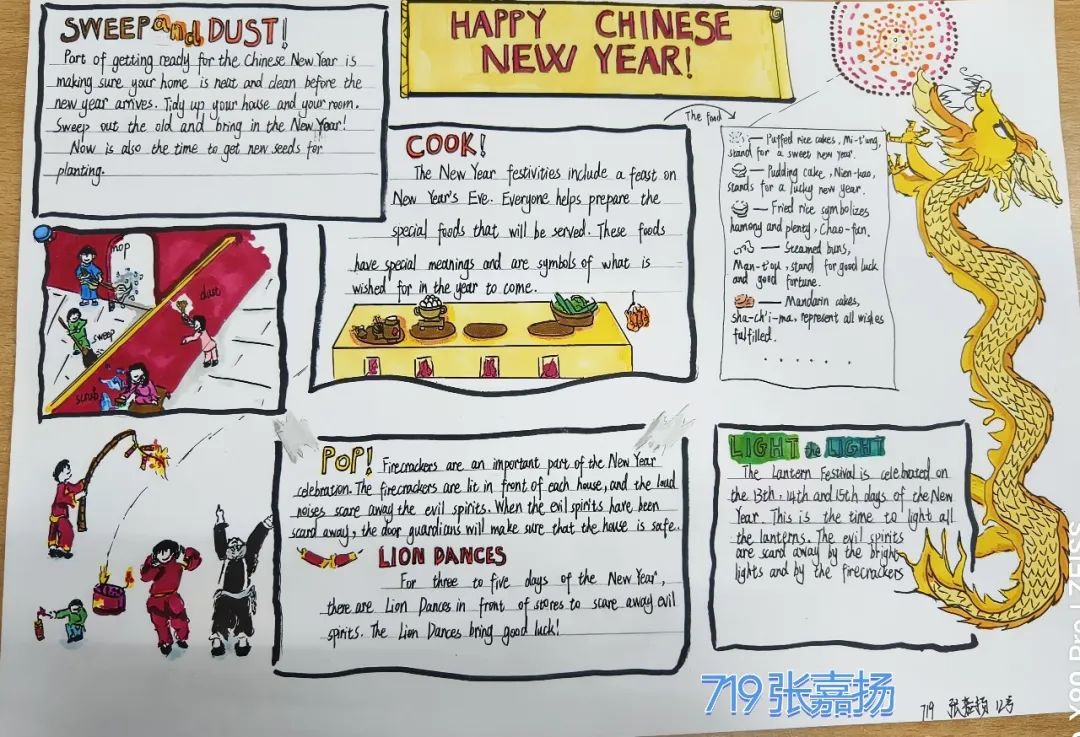 HAPPY CHINESE
NEW YEAR!
SWEEP and DUST!
Part of getting ready for the Chinese New Year is
making sure your home is neat and clean before the
new year arrives. Tidy up your house and your room.
Sweep out the old and bring in the New Year!
Now is also the time to get new seeds for
planting.
mop
dust
sweep
scrub
COOK!
The New Year festivities include a feast on
New Year's Eve. Everyone helps prepare the
special foods that will be served. These foods
have special meanings and are symbols of what is
wished for in the year to come.
The food
— Puffed rice cakes, Mi-t'ung,
stand for a sweet new year.
— Pudding cake, Nien-kao,
stands for a lucky new year.
— Fried rice symbolizes
hamony and plenty, Chao-fan.
— Steamed buns,
Man-t'ou, stand for good luck
and good fortune.
— Mandarin cakes,
sha-ch'i-ma, represent all wishes
fulfilled.
......
POP! Firecrackers are an important part of the New Year
celebration. The firecrackers are lit in front of each house, and the loud
noises scare away the evil spirits. When the evil spirits have been
scard away, the door guardians will make sure that the house is safe.
LION DANCES
For three to five days of the New Year,
there are Lion Dances in front of stores to scare away evil
spirits. The Lion Dances bring good luck!
LIGHT the LIGHT
The Lantern Festival is celebrated on
the 13th, 14th and 15th days of the New
Year. This is the time to light all
the lanterns. The evil spirits
are scard away by the bright
lights and by the firecrackers
719 张嘉扬
719 张嘉扬 12号
X90 Pro | ZEISS